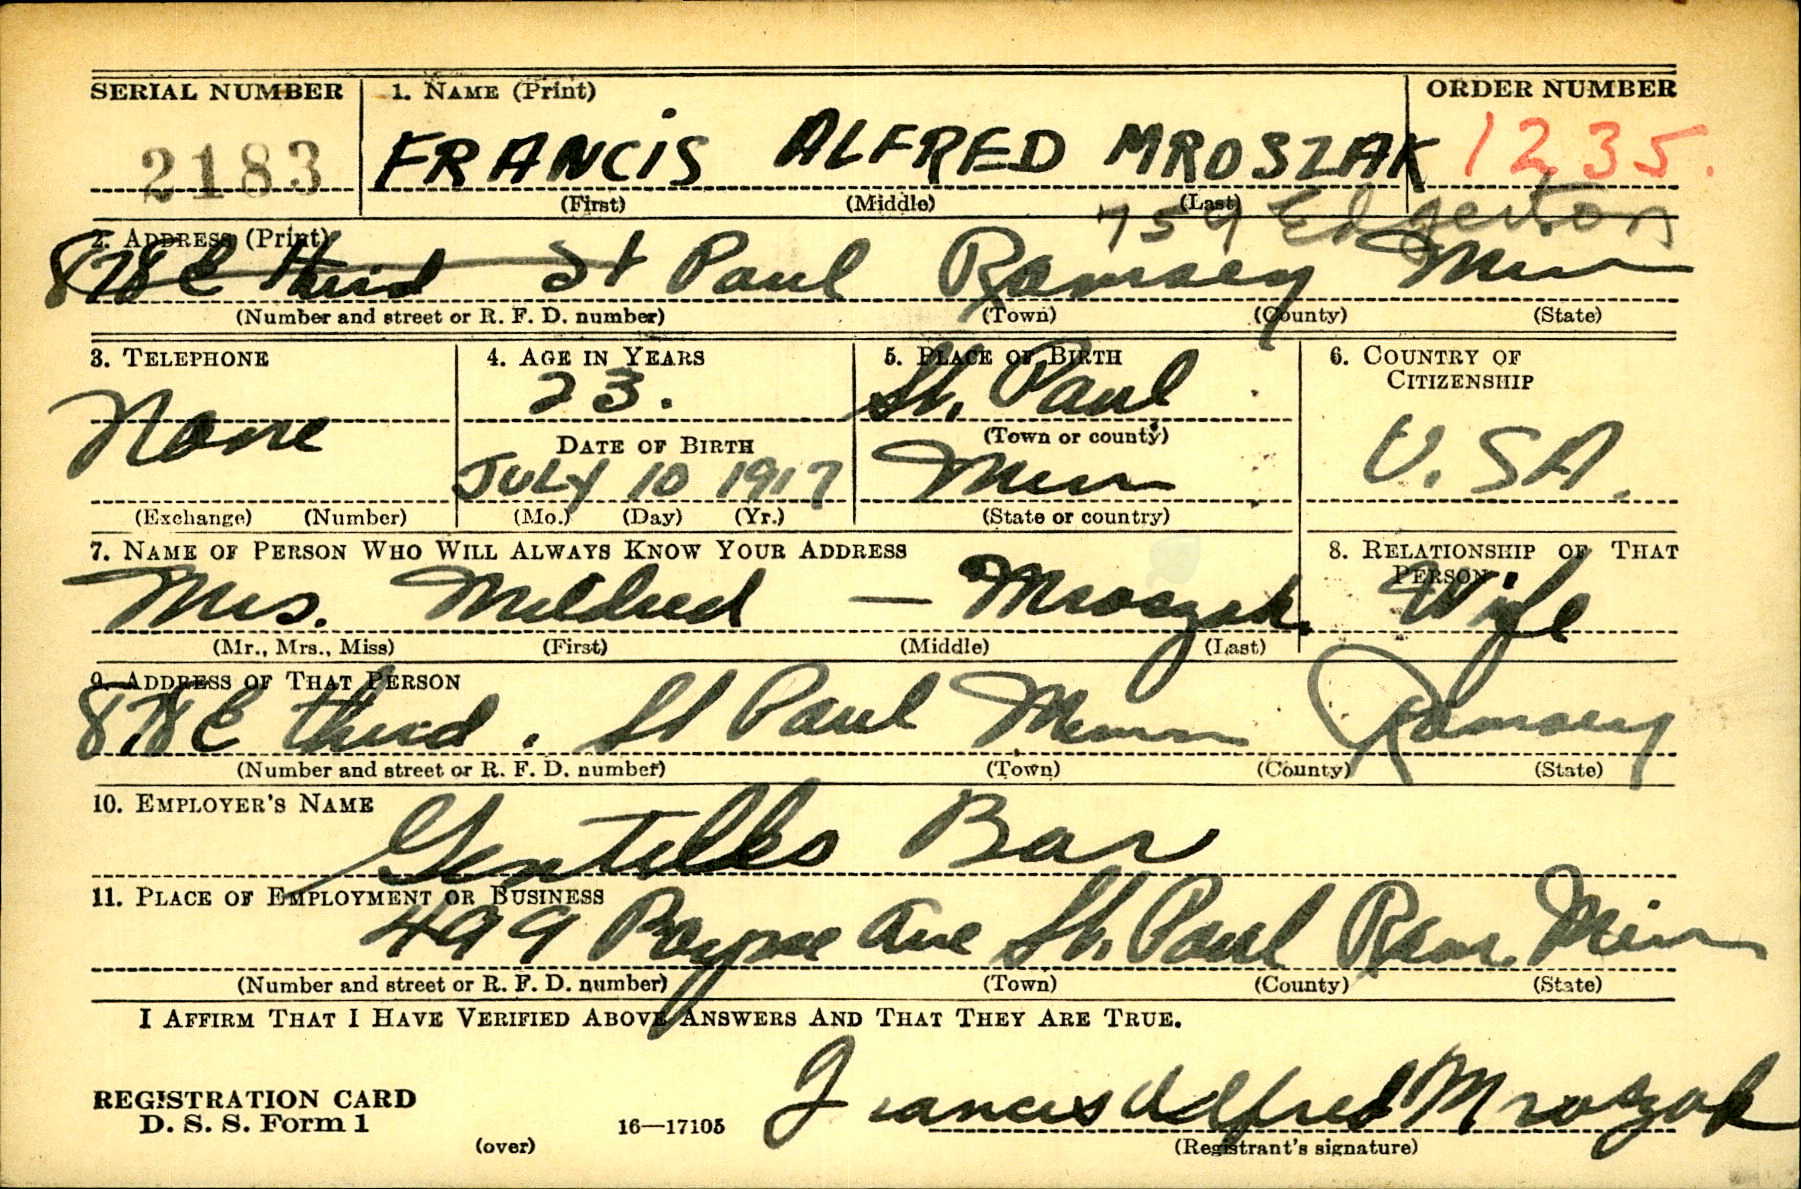 SERIAL NUMBER 1. NAME (Print) ORDER NUMBER
2183 FRANCIS ALFRED MROSZAK 1235.
(First) (Middle) (Last)
759 Edgerton
2. ADDRESS (Print)
878 E third St Paul Ramsey Minn
(Number and street or R. F. D. number) (Town) (County) (State)
3. TELEPHONE 4. AGE IN YEARS 5. PLACE OF BIRTH 6. COUNTRY OF
CITIZENSHIP
None 23. St. Paul U.SA.
(Town or county)
DATE OF BIRTH
JULY 10 1917 Minn
(Exchange) (Number) (Mo.) (Day) (Yr.) (State or country)
7. NAME OF PERSON WHO WILL ALWAYS KNOW YOUR ADDRESS 8. RELATIONSHIP OF THAT
PERSON
Mrs. Mildred — Mroszak Wife
(Mr., Mrs., Miss) (First) (Middle) (Last)
9. ADDRESS OF THAT PERSON
878 E third. St Paul Minn Ramsey
(Number and street or R. F. D. number) (Town) (County) (State)
10. EMPLOYER'S NAME
Bar
11. PLACE OF EMPLOYMENT OR BUSINESS
499 Payne Ave St. Paul Ram. Minn
(Number and street or R. F. D. number) (Town) (County) (State)
I AFFIRM THAT I HAVE VERIFIED ABOVE ANSWERS AND THAT THEY ARE TRUE.
Francis Alfred Mroszak
REGISTRATION CARD
D. S. S. Form 1
(over) 16—17105 (Registrant's signature)